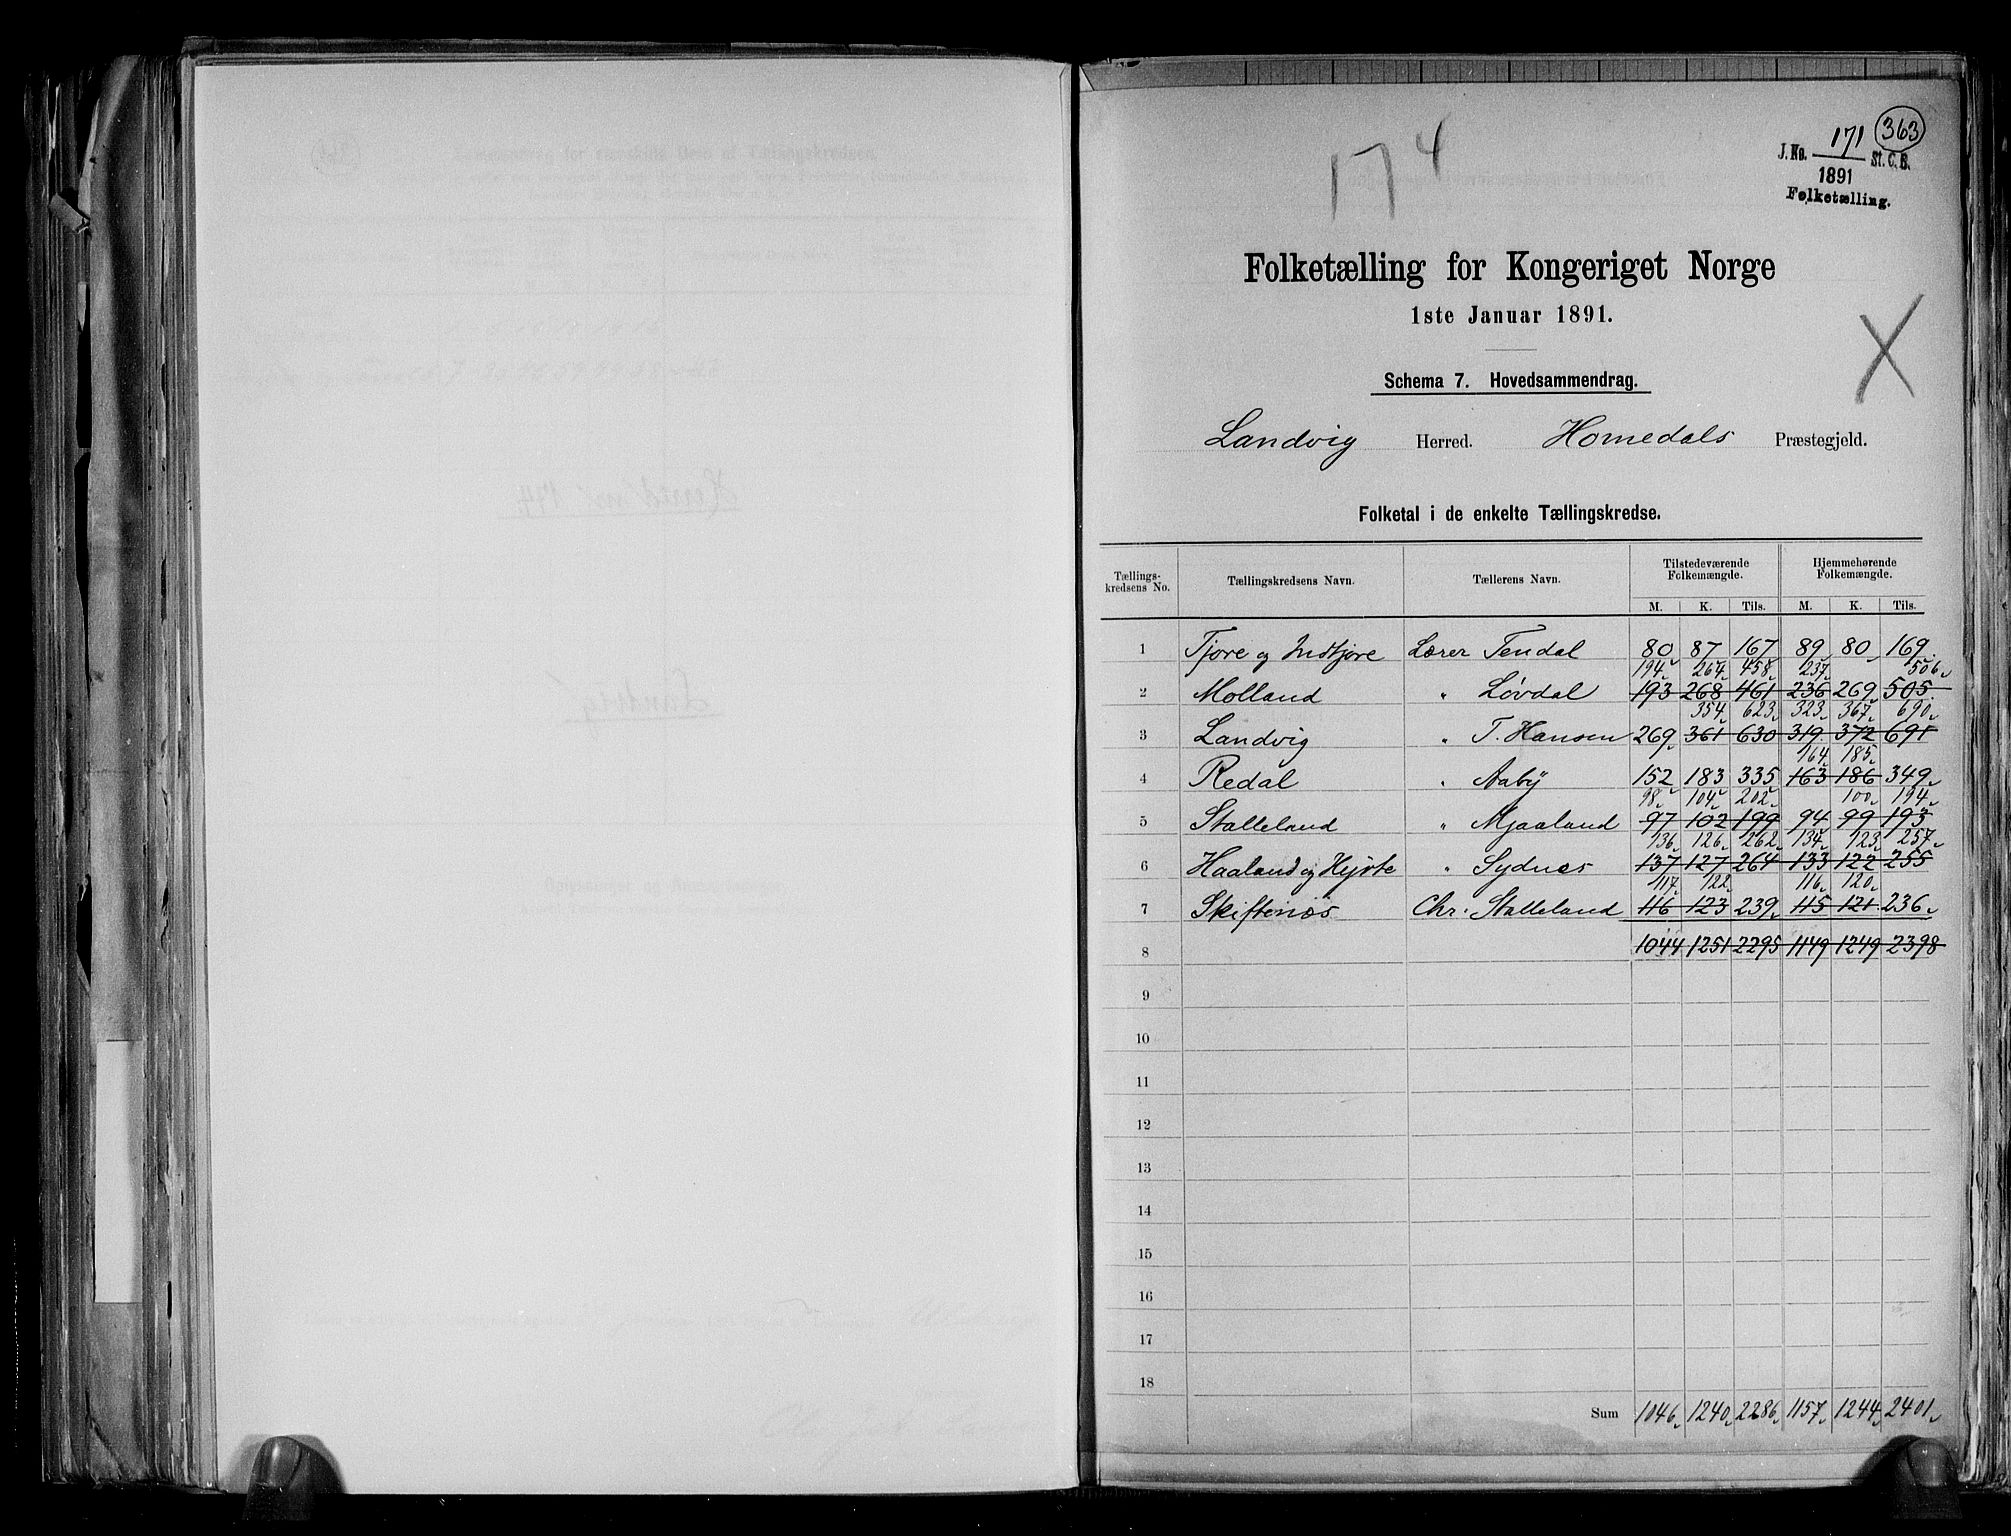 174
363
J. No. 171 St. C. B.
1891
Folketælling.
Folketælling for Kongeriget Norge
1ste Januar 1891.
Schema 7. Hovedsammendrag.
Landvig Herred. Homedals Præstegjeld.
Folketal i de enkelte Tællingskredse.
Tællings-kredsens No. Tællingskredsens Navn. Tællerens Navn. Tilstedeværende Folkemængde. Hjemmehørende Folkemængde.
M. K. Tils. M. K. Tils.
1 Tjore og Indtjore Lærer Tendal 80 87 167 89 80 169
194 264 458 237 506
2 Molland " Løvdal 193 268 461 236 269 505
354 623 323 367 690
3 Landvig " T. Hansen 269 361 630 319 372 691
164 185
4 Redal " Aaby 152 183 335 163 186 349
98 104 202 100 194
5 Stalleland " Mjaaland 97 102 199 94 99 193
136 126 262 134 123 257
6 Haaland og Hjorte " Sydnes 137 127 264 133 122 255
117 122 116 120
7 Skiftenæs Chr. Stalleland 116 123 239 115 121 236
8 1044 1251 2295 1149 1249 2398
9
10
11
12
13
14
15
16
17
18
Sum 1046 1240 2286 1157 1244 2401